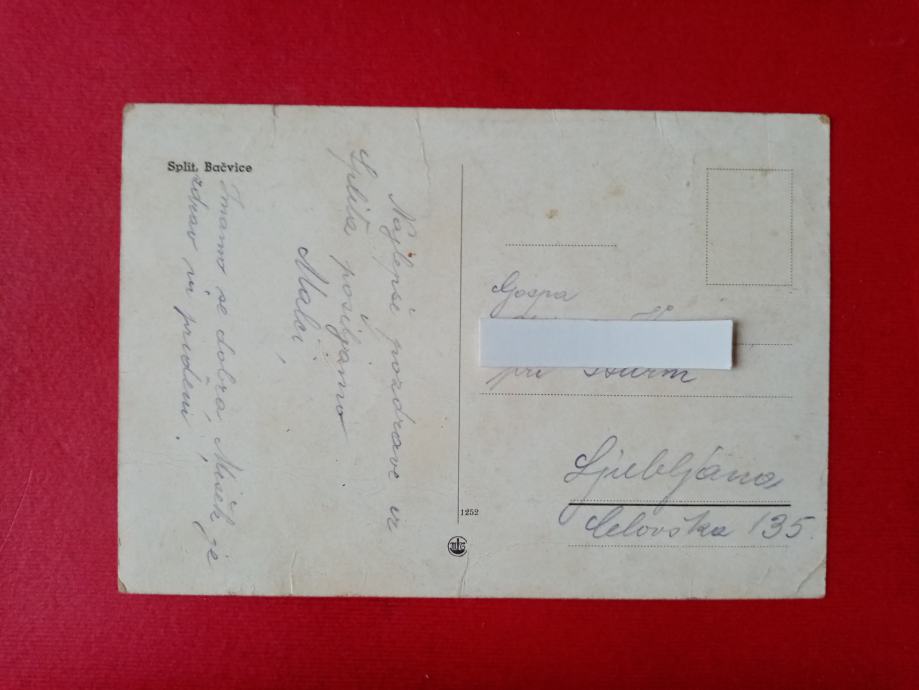 Split, Bačvice
Najlepše pozdrave iz
Splita pošiljamo
Malči,
Imamo se dobro, Mišek je
zdrav in priden.
Gospa
pri Sturm
Ljubljana
Celovška 135
1252